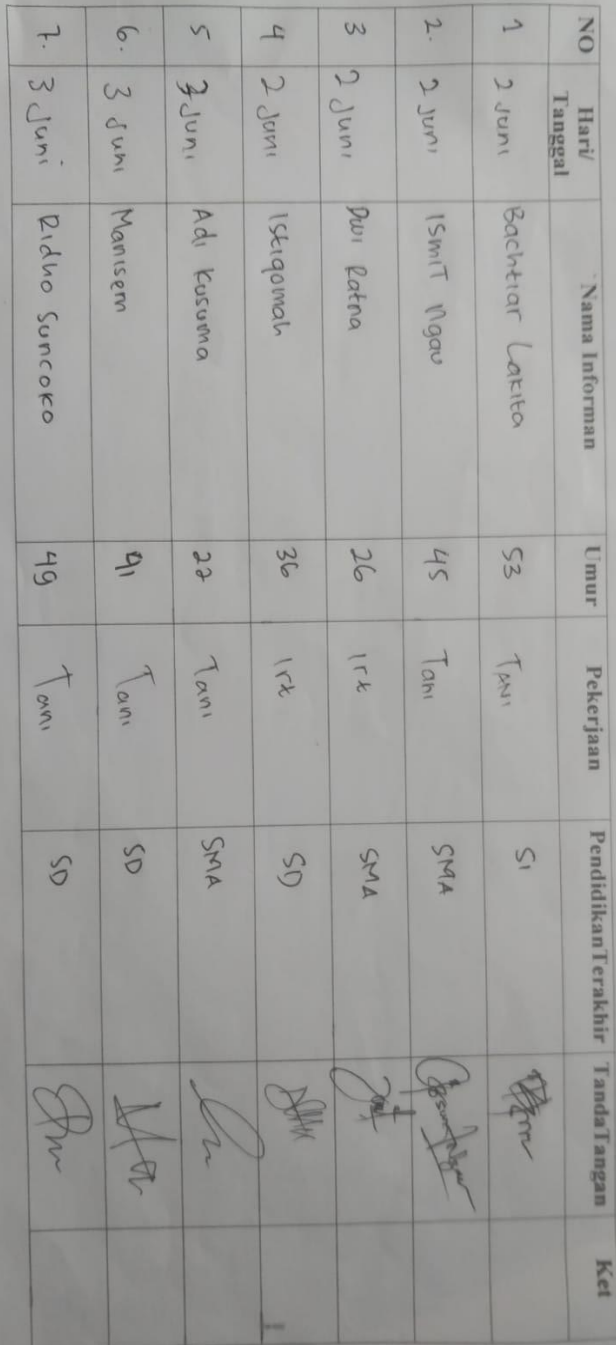 NO Hari/Tanggal Nama Informan Umur Pekerjaan PendidikanTerakhir TandaTangan Ket
1 2 Juni Bachtiar Lakita 53 TANI S1
2. 2 Juni ISmiT Ngau 45 Tani SMA
3 2 Juni Dwi Ratna 26 Irt SMA
4 2 Juni Istiqomah 36 Irt SD
5 Juni Adi Kusuma 22 Tani SMA
6. 3 Juni Manisem 41 Tani SD
7. 3 Juni Ridho Suncoko 49 Tani SD